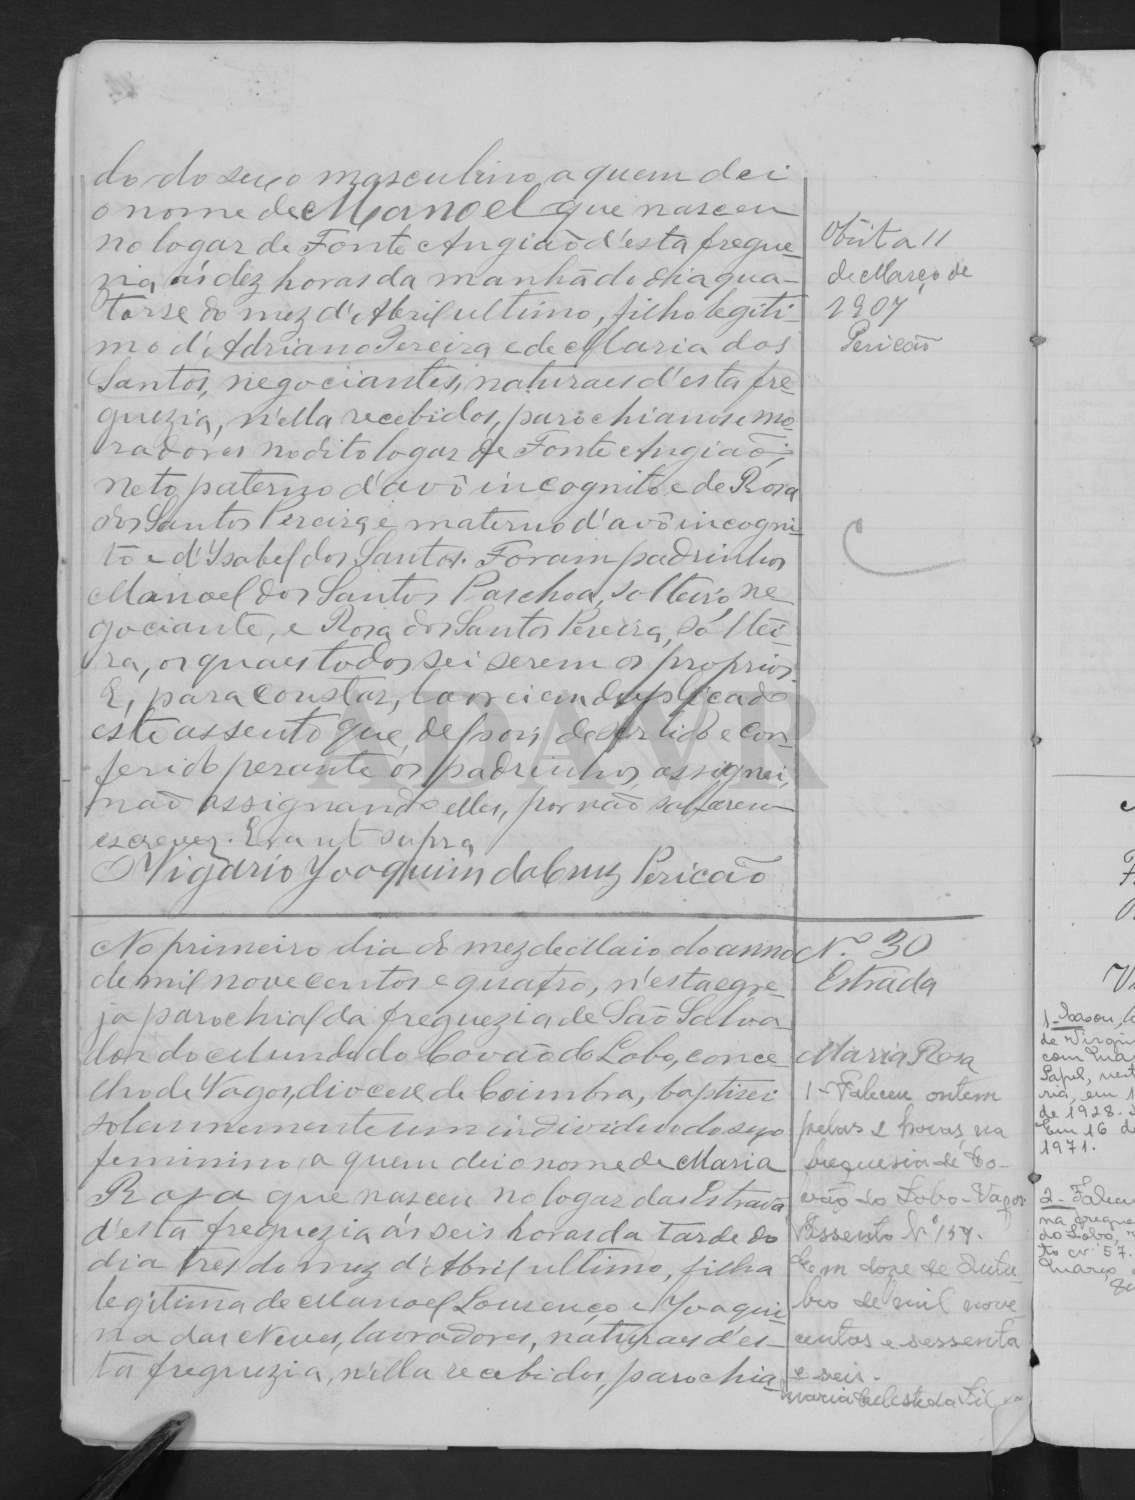 do do sexo masculino, a quem dei
o nome de Manoel que nasceu
no logar de Fonte Angião d'esta fregue-
zia, ás dez horas da manhã do dia qua-
torse do mez d'Abril ultimo, filho legiti-
mo d'Adriano Pereira e de Maria dos
Santos, negociantes, naturaes d'esta fre-
guezia, n'ella recebidos, parochianos e mo-
radores no dito logar de Fonte Angião;
neto paterno d'avô incognito e de Rosa
dos Santos Pereira, e materno d'avô incogni-
to e d'Ysabel dos Santos. Foram padrinhos
Manoel dos Santos Paschoa, solteiro, ne
gociante, e Rosa dos Santos Pereira, soltei
ra, os quaes todos sei serem os proprios.
E, para constar, lavrei em duplicado
este assento que, depois de ser lido e con-
ferido perante os padrinhos, assignei,
não assignando elles, por não saberem
escrever. Era ut supra
O Vigario Joaquim da Cruz Pericão
Obiit a 11
de Março de
1907
Pericão
ADAVR
No primeiro dia do mez de Maio do anno
de mil novecentos e quatro, n'esta egre-
ja parochial da freguezia de São Salva-
dor do Mundo do Covão do Lobo, conce-
lho de Vagos, diocese de Coimbra, baptisei
solemnemente um individuo do sexo
feminino, a quem dei o nome de Maria
Rosa que nasceu no logar das Estrada
d'esta freguezia ás seis horas da tarde do
dia tres do mez d'Abril ultimo, filha
legitima de Manoel Lourenço e Joaqui-
na das Neves, lavradores, naturaes d'es-
ta freguezia, n'ella recebidos, parochia-
N.º 30
Estrada
Maria Rosa
1-Faleceu ontem
pelas 2 horas, na
freguesia de Co-
vão do Lobo-Vagos
Assento Nº 157.
Em doze de Outu-
bro de mil nove
centos e sessenta
e seis.
Maria Celeste da Sil
1-Casou
de Virgin
com Mar
Papel, nest
ria, em 1
de 1928.
Em 16 de
1971.
2-Faleceu
na fregue
do Lobo,
to nº 57.
Março